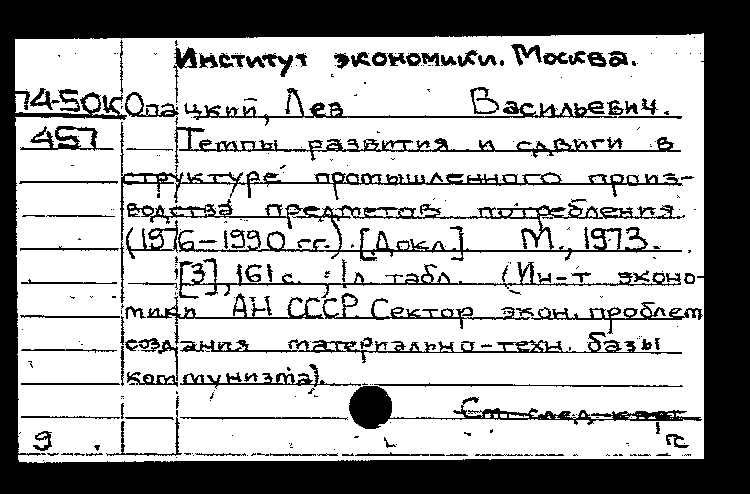 Институт экономики. Москва.
74-50К Опацкий, Лев Васильевич.
457 Темпы развития и сдвиги в
структуре промышленного произ-
водства предметов потребления
(1976-1990 гг.). [Докл.]. М., 1973.
[3], 161 с. ; 1 л. табл. (Ин-т эконо-
мики АН СССР. Сектор экон. проблем
создания материально-техн. базы
коммунизма).
См. след. карт.
9